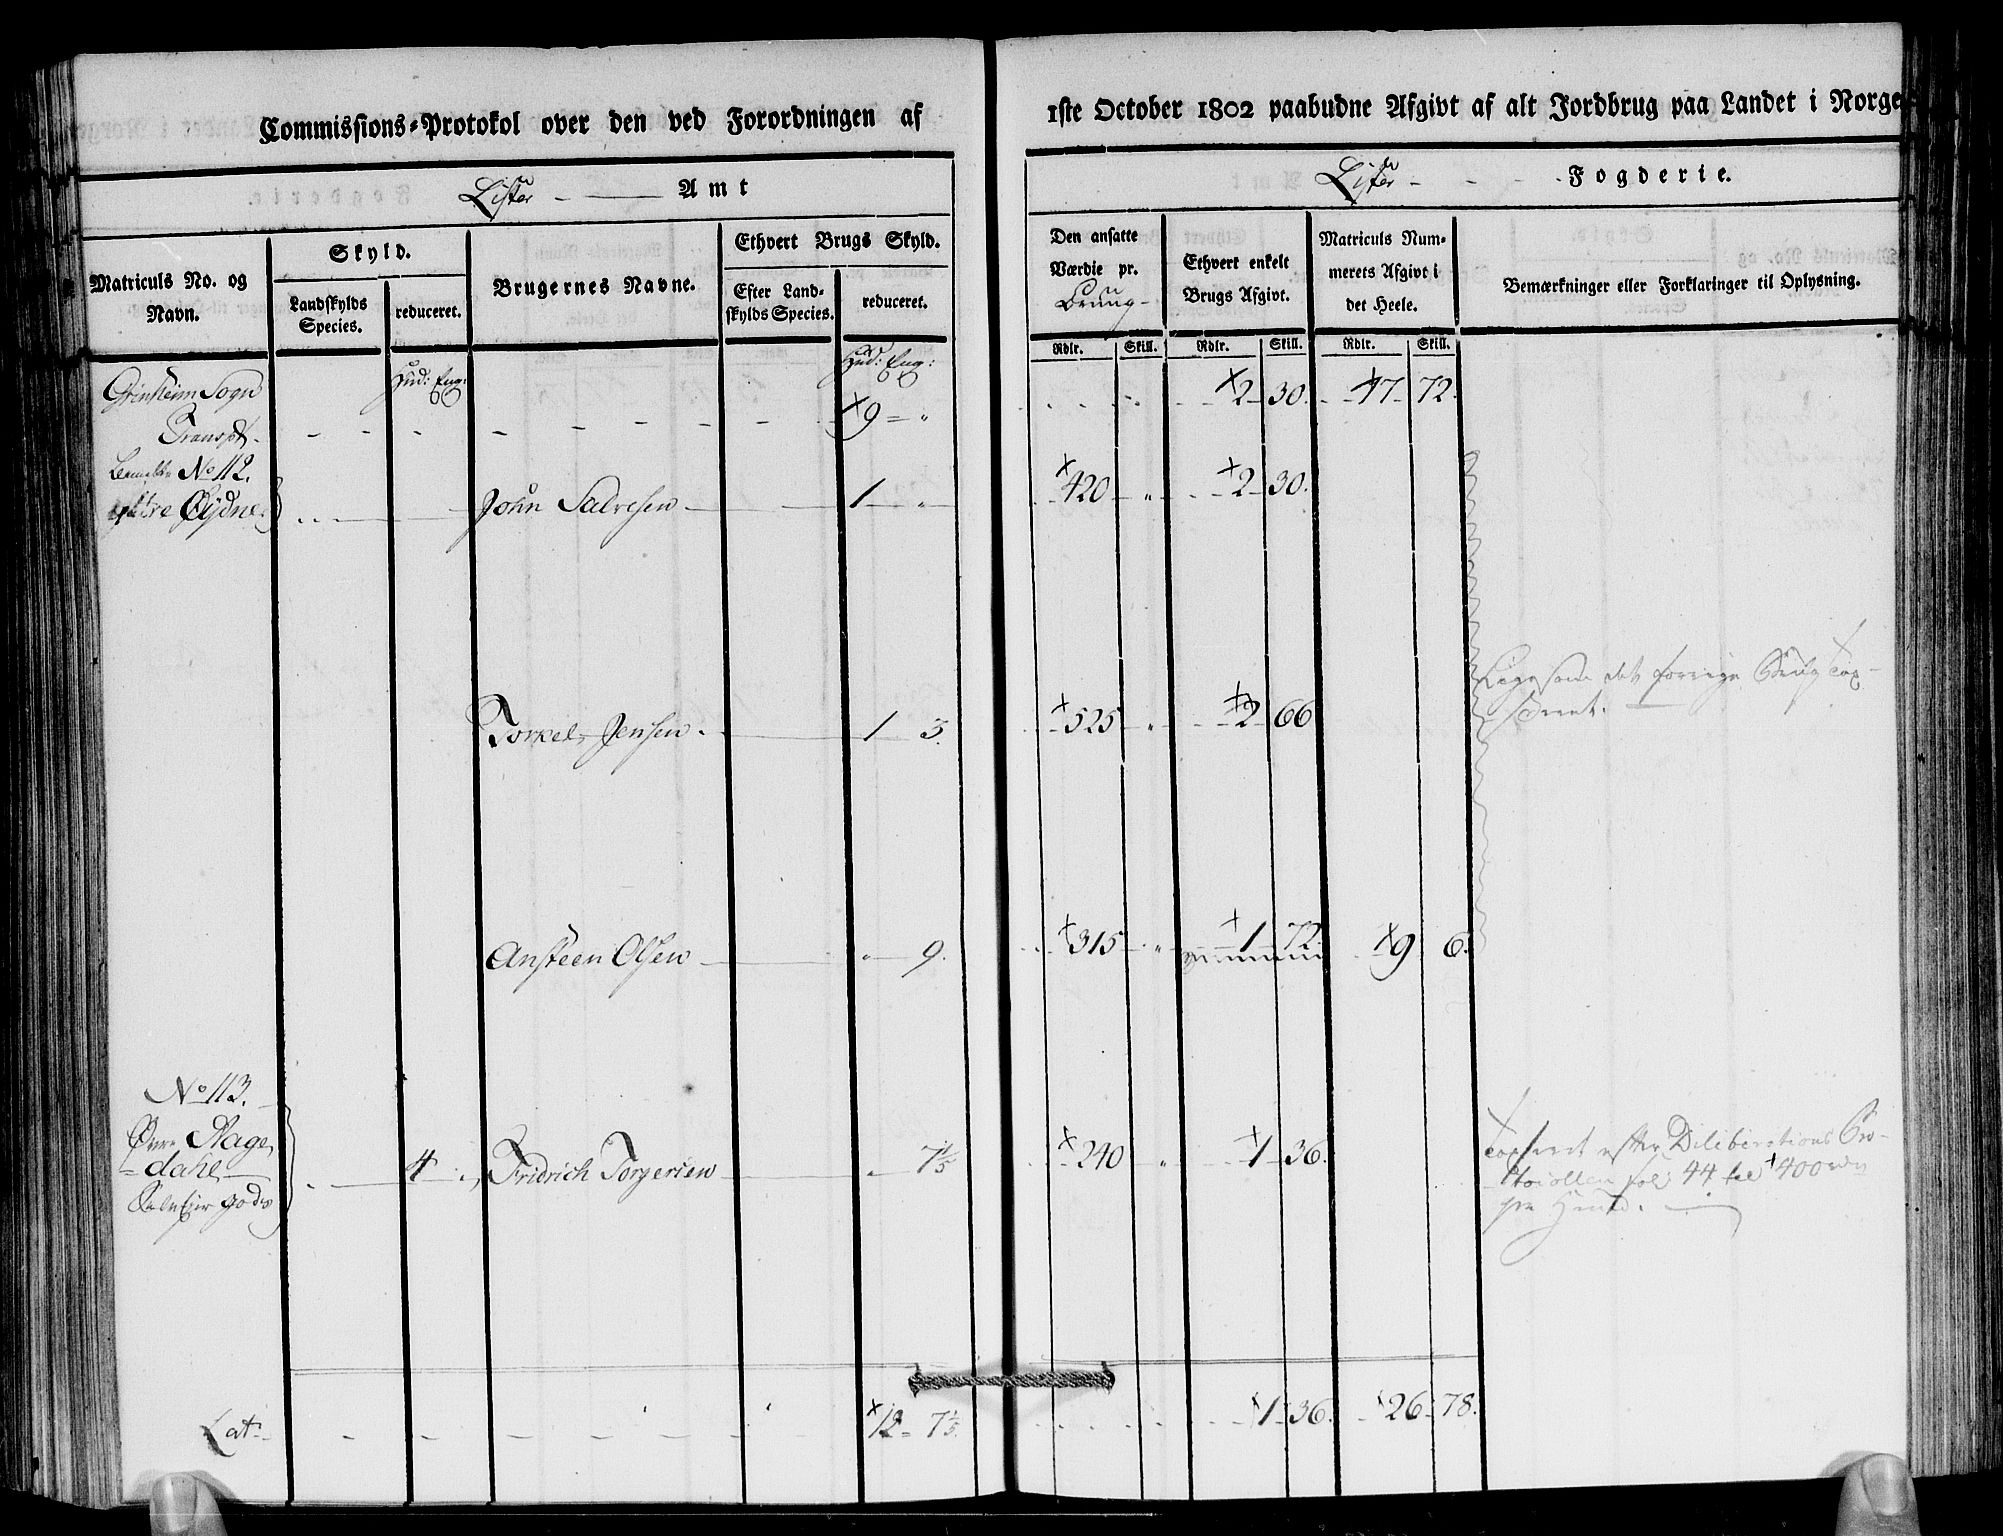 Commissions-Protokol over den ved Forordningen af
Lister Amt
Matriculs No. og Navn.
Skyld.
Landskylds Species.
reduceret.
Brugernes Navne.
Ethvert Brugs Skyld.
Efter Landskylds Species.
reduceret.
Hud: Eng:
Hud: Eng:
Grinheim Sogn
Transpt. 9 "
No 112.
Øydne John Salvesen 1 "
Torkel Jensen. 1 3.
Ansteen Olsen " 9.
No 113.
Øvre Hage
dahl 4 Fridrich Torgersen " 7 1/5
Lat: 12 7 1/5
1ste October 1802 paabudne Afgivt af alt Jordbrug paa Landet i Norge
Lister Fogderie.
Den ansatte Værdie pr.
Brug
Ethvert enkelt Brugs Afgivt.
Matriculs Nummerets Afgivt i det Heele.
Bemærkninger eller Forklaringer til Oplysning.
Rdlr. Skill. Rdlr. Skill. Rdlr. Skill.
2 30. 17 72
420 " 2 30.
525 " 2 66
Ligesom det forrige Brug tax-
eret.
315 " 1 72. 9 6.
240 " 1 36.
taxeret efter Deliberations Pro-
tocollen fol: 44 til 400 rdr
pr Huud.
1 36. 26 78.